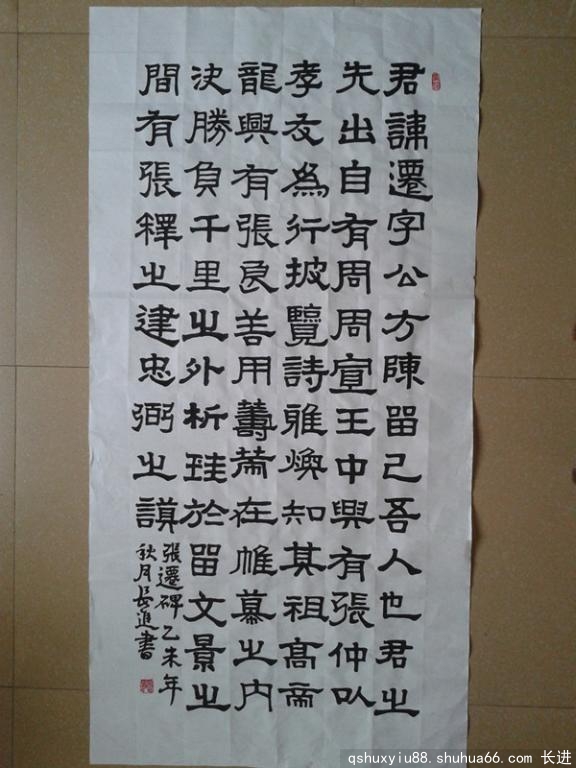 君諱遷字公方陳留己吾人也君之
先出自有周周宣王中興有張仲以
孝友為行披覽詩雅煥知其祖高帝
龍興有張良善用籌策在帷幕之内
決勝負千里之外析珪於留文景之
間有張釋之建忠弼之謨
張遷碑乙未年
秋月長進書
qshuxyiu88. shuhua66. com 长进